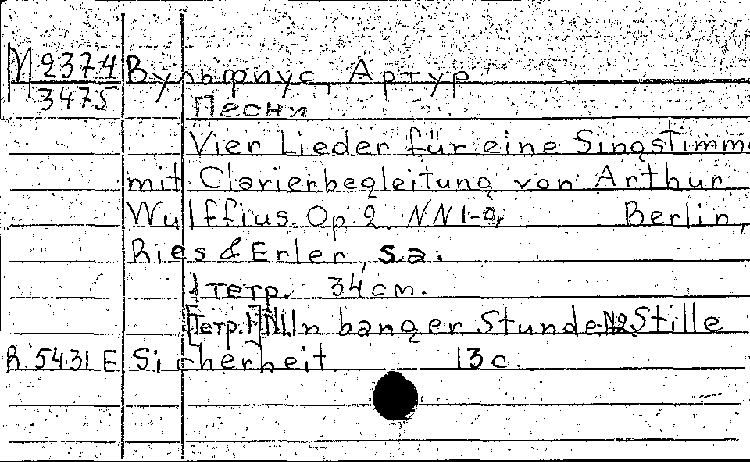 М 2374 Вульфиус, Артур
3475 Песни
Vier Lieder für eine Singstimm
mit Clavierbegleitung von Arthur
Wulffius. Op. 2. NN 1-4, Berlin,
Ries & Erler, s.a.
1 тетр. 34 cm.
[Тетр. 1] N1. In banger Stunde. N2. Stille
R. 5431 E Sicherheit 13 c